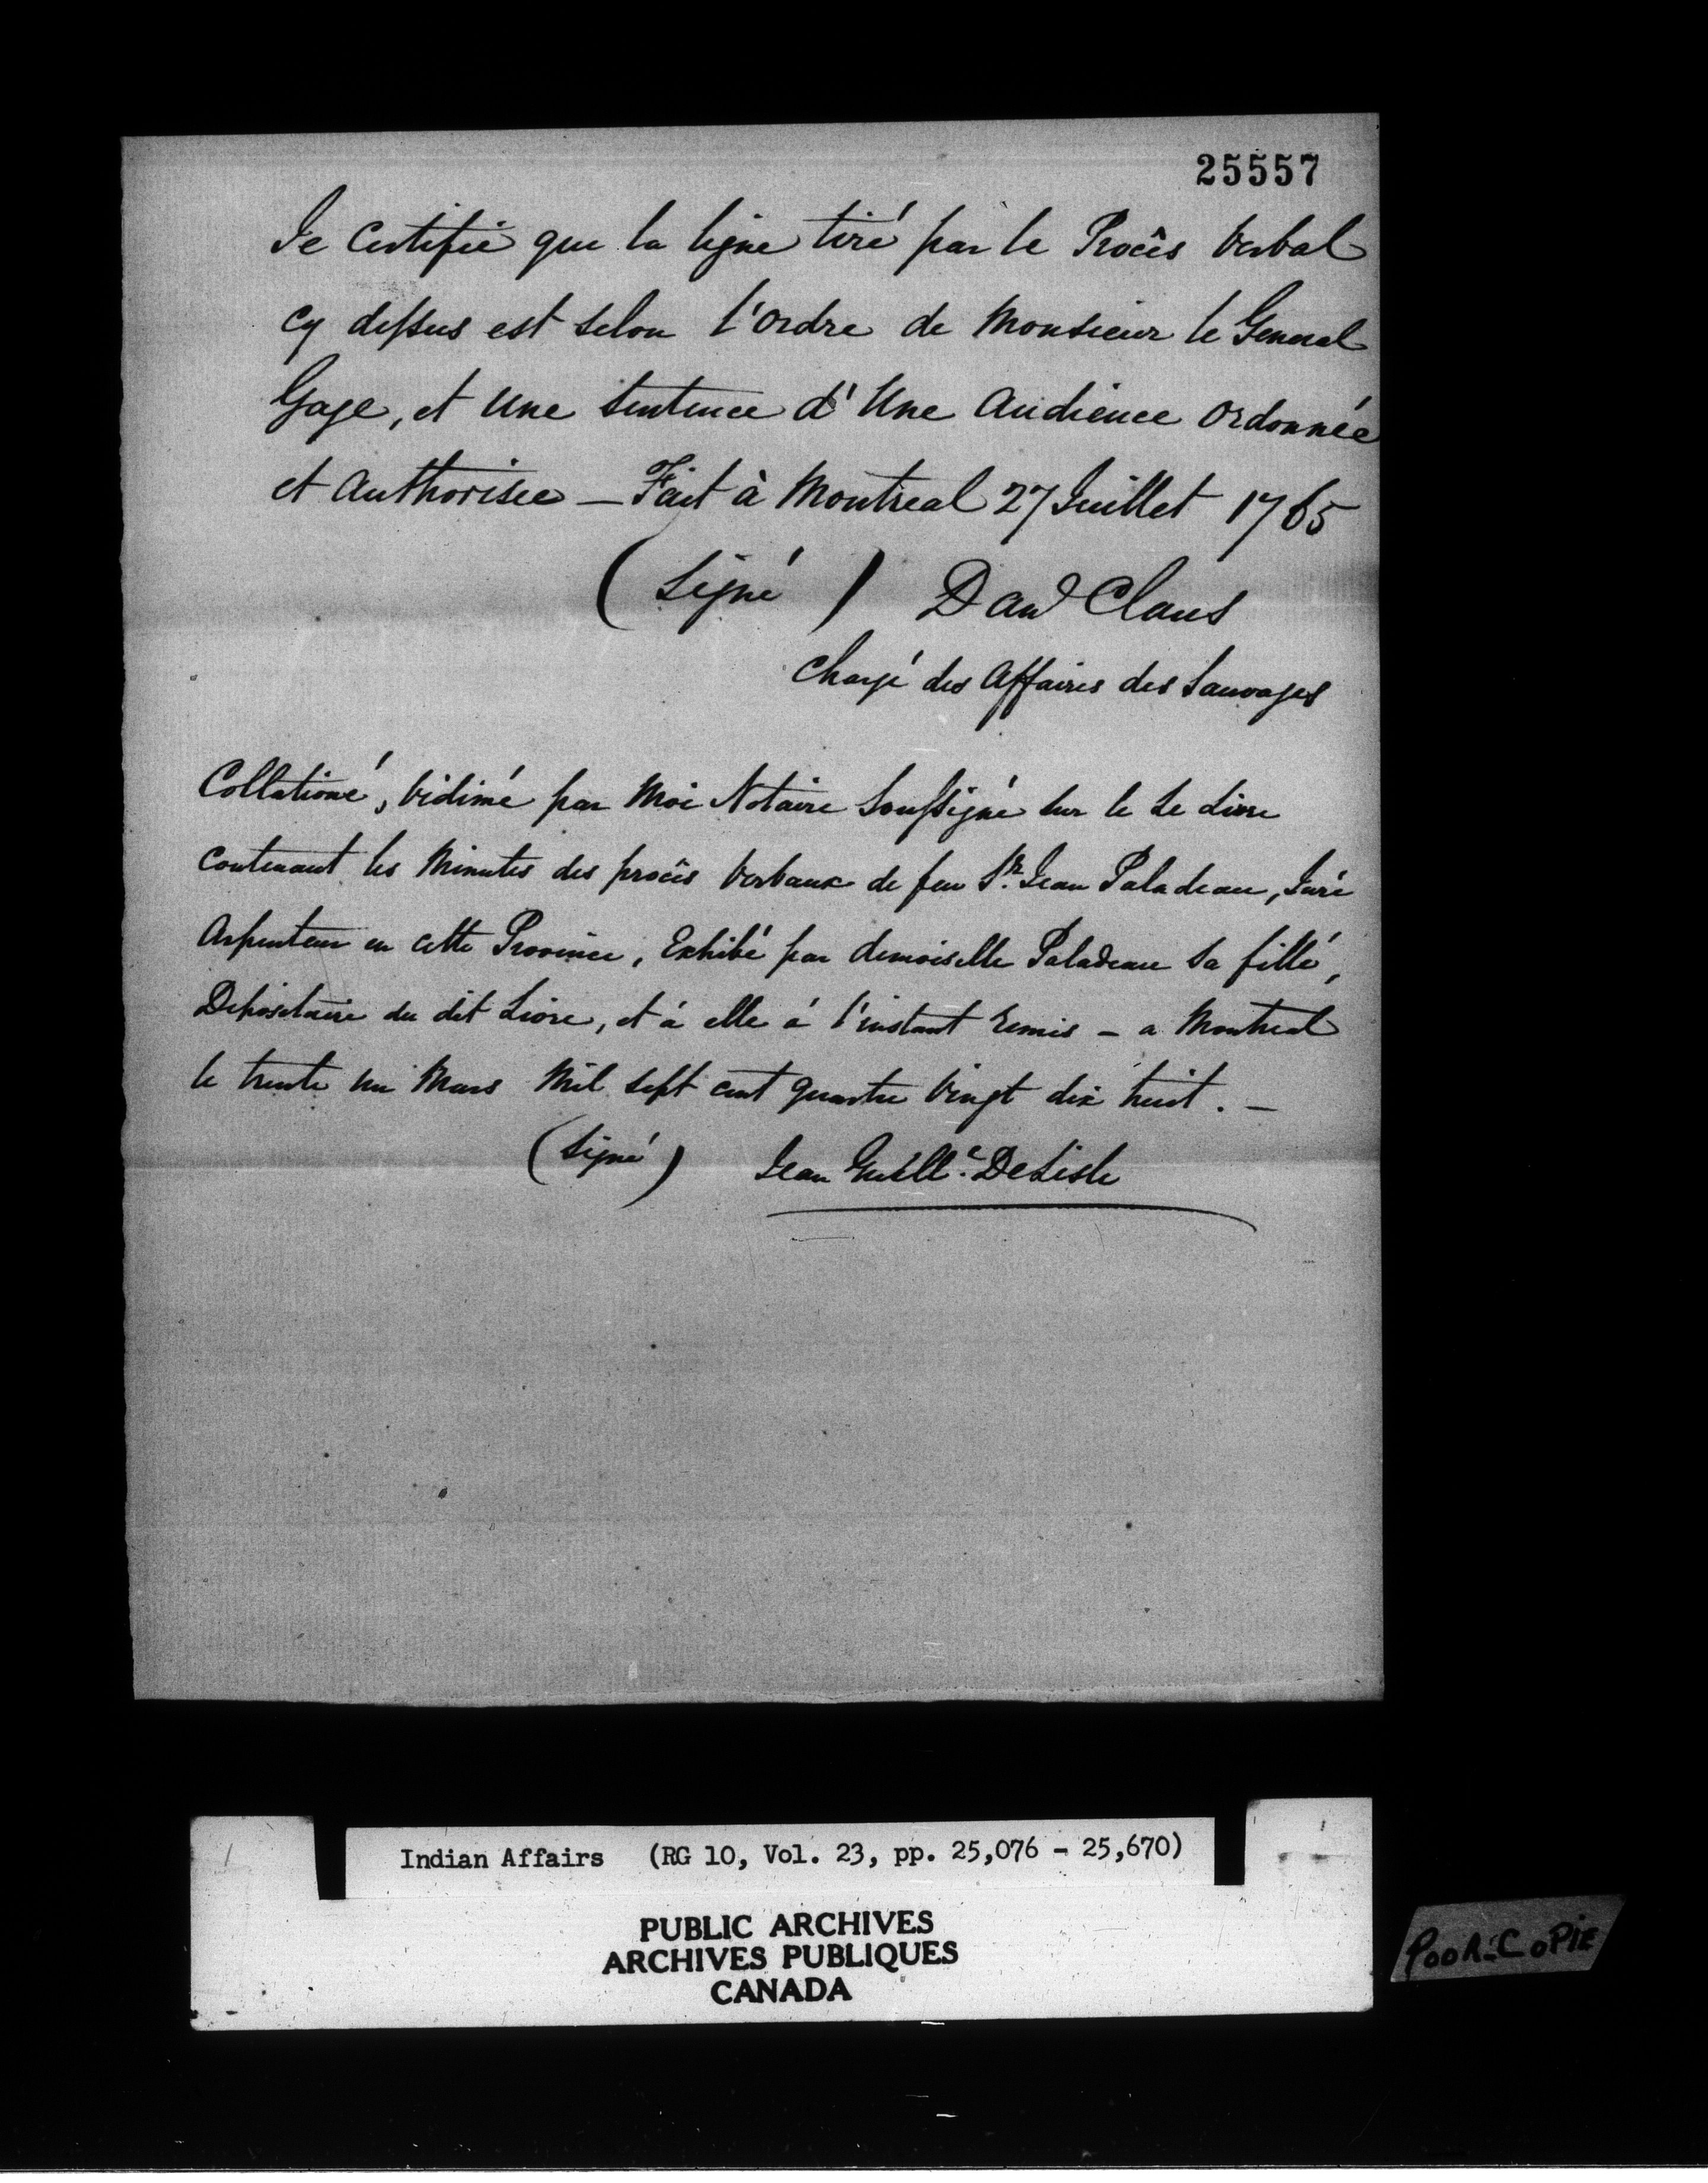 25557
Je Certifie que la ligne tiré par le Procês Verbal
Cy dessus est selon l'Ordre de Monsieur le General
Gage, et Une Sentence d'Une Audience Ordonnée
et Authorisée — Fait à Montreal 27 Juillet 1765
(Signé) Danl Claus
Chargé des Affaires des Sauvages
Collationé, vidimé par Moi Notaire Soussigné sur le Le Livre
Contenant les Minutes des procês Verbaux de feu Sr. Jean Paladeau, Juré
Arpenteur en cette Province, Exhibé par demoiselle Paladeau Sa fille,
Depositaire du dit Livre, et á elle á l'instant Remis — a Montreal
le trente un Mars Mil Sept cent quatre Vingt dix huit. —
(Signé) Jean Guill.e DeLisle
Indian Affairs (RG 10, Vol. 23, pp. 25,076 - 25,670)
PUBLIC ARCHIVES
ARCHIVES PUBLIQUES
CANADA
POOR-COPIE